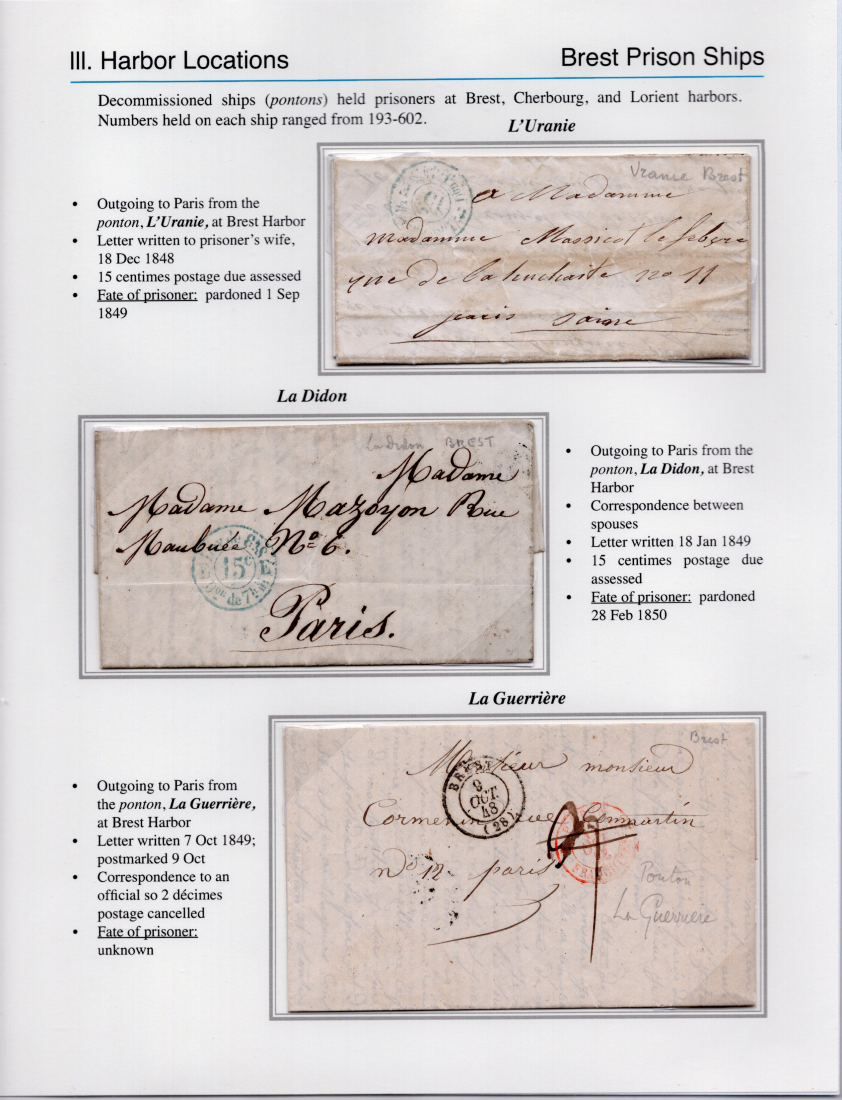 III. Harbor Locations
Brest Prison Ships
Decommissioned ships (pontons) held prisoners at Brest, Cherbourg, and Lorient harbors.
Numbers held on each ship ranged from 193-602.
L'Uranie
• Outgoing to Paris from the
ponton, L'Uranie, at Brest Harbor
• Letter written to prisoner's wife,
18 Dec 1848
• 15 centimes postage due assessed
• Fate of prisoner: pardoned 1 Sep
1849
Uranie Brest
a Madamme
madamme Massicot lefebvre
rue de la huchaite no 11
paris saine
La Didon
La Didon BREST
Madame
Madame Mazoyon Rue
Maubuée No 6.
E 15c E
on de 7h
Paris.
• Outgoing to Paris from the
ponton, La Didon, at Brest
Harbor
• Correspondence between
spouses
• Letter written 18 Jan 1849
• 15 centimes postage due
assessed
• Fate of prisoner: pardoned
28 Feb 1850
La Guerrière
• Outgoing to Paris from
the ponton, La Guerrière,
at Brest Harbor
• Letter written 7 Oct 1849;
postmarked 9 Oct
• Correspondence to an
official so 2 décimes
postage cancelled
• Fate of prisoner:
unknown
Brest
monsieur
BREST
9
OCT.
48
(28)
no 12 paris
Ponton
La Guerriere